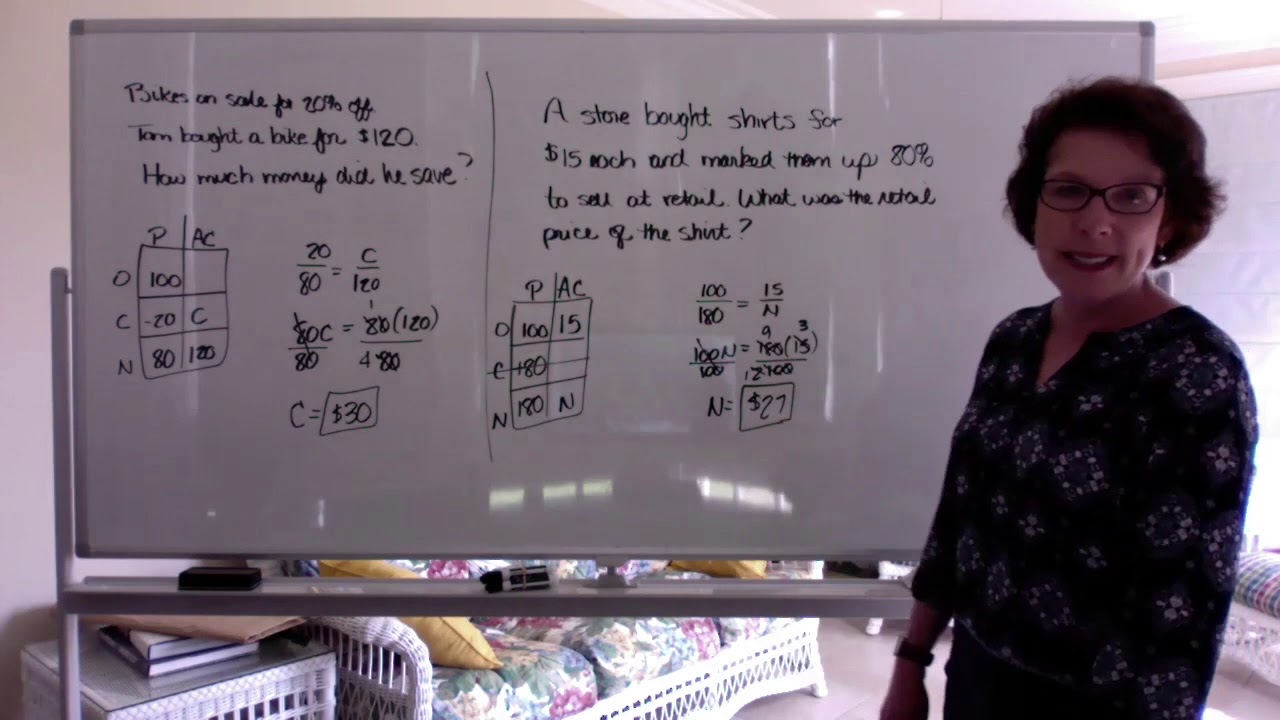 Bikes on sale for 20% off
Tom bought a bike for $120.
How much money did he save?
P AC
O 100
C -20 C
N 80 120
20/80 = C/120
80C/80 = 80(120)/80
C = $30
A store bought shirts for
$15 each and marked them up 80%
to sell at retail. What was the retail
price of the shirt?
P AC
O 100 15
C +80
N 180 N
100/180 = 15/N
100N/100 = 180(15)/100
N = $27